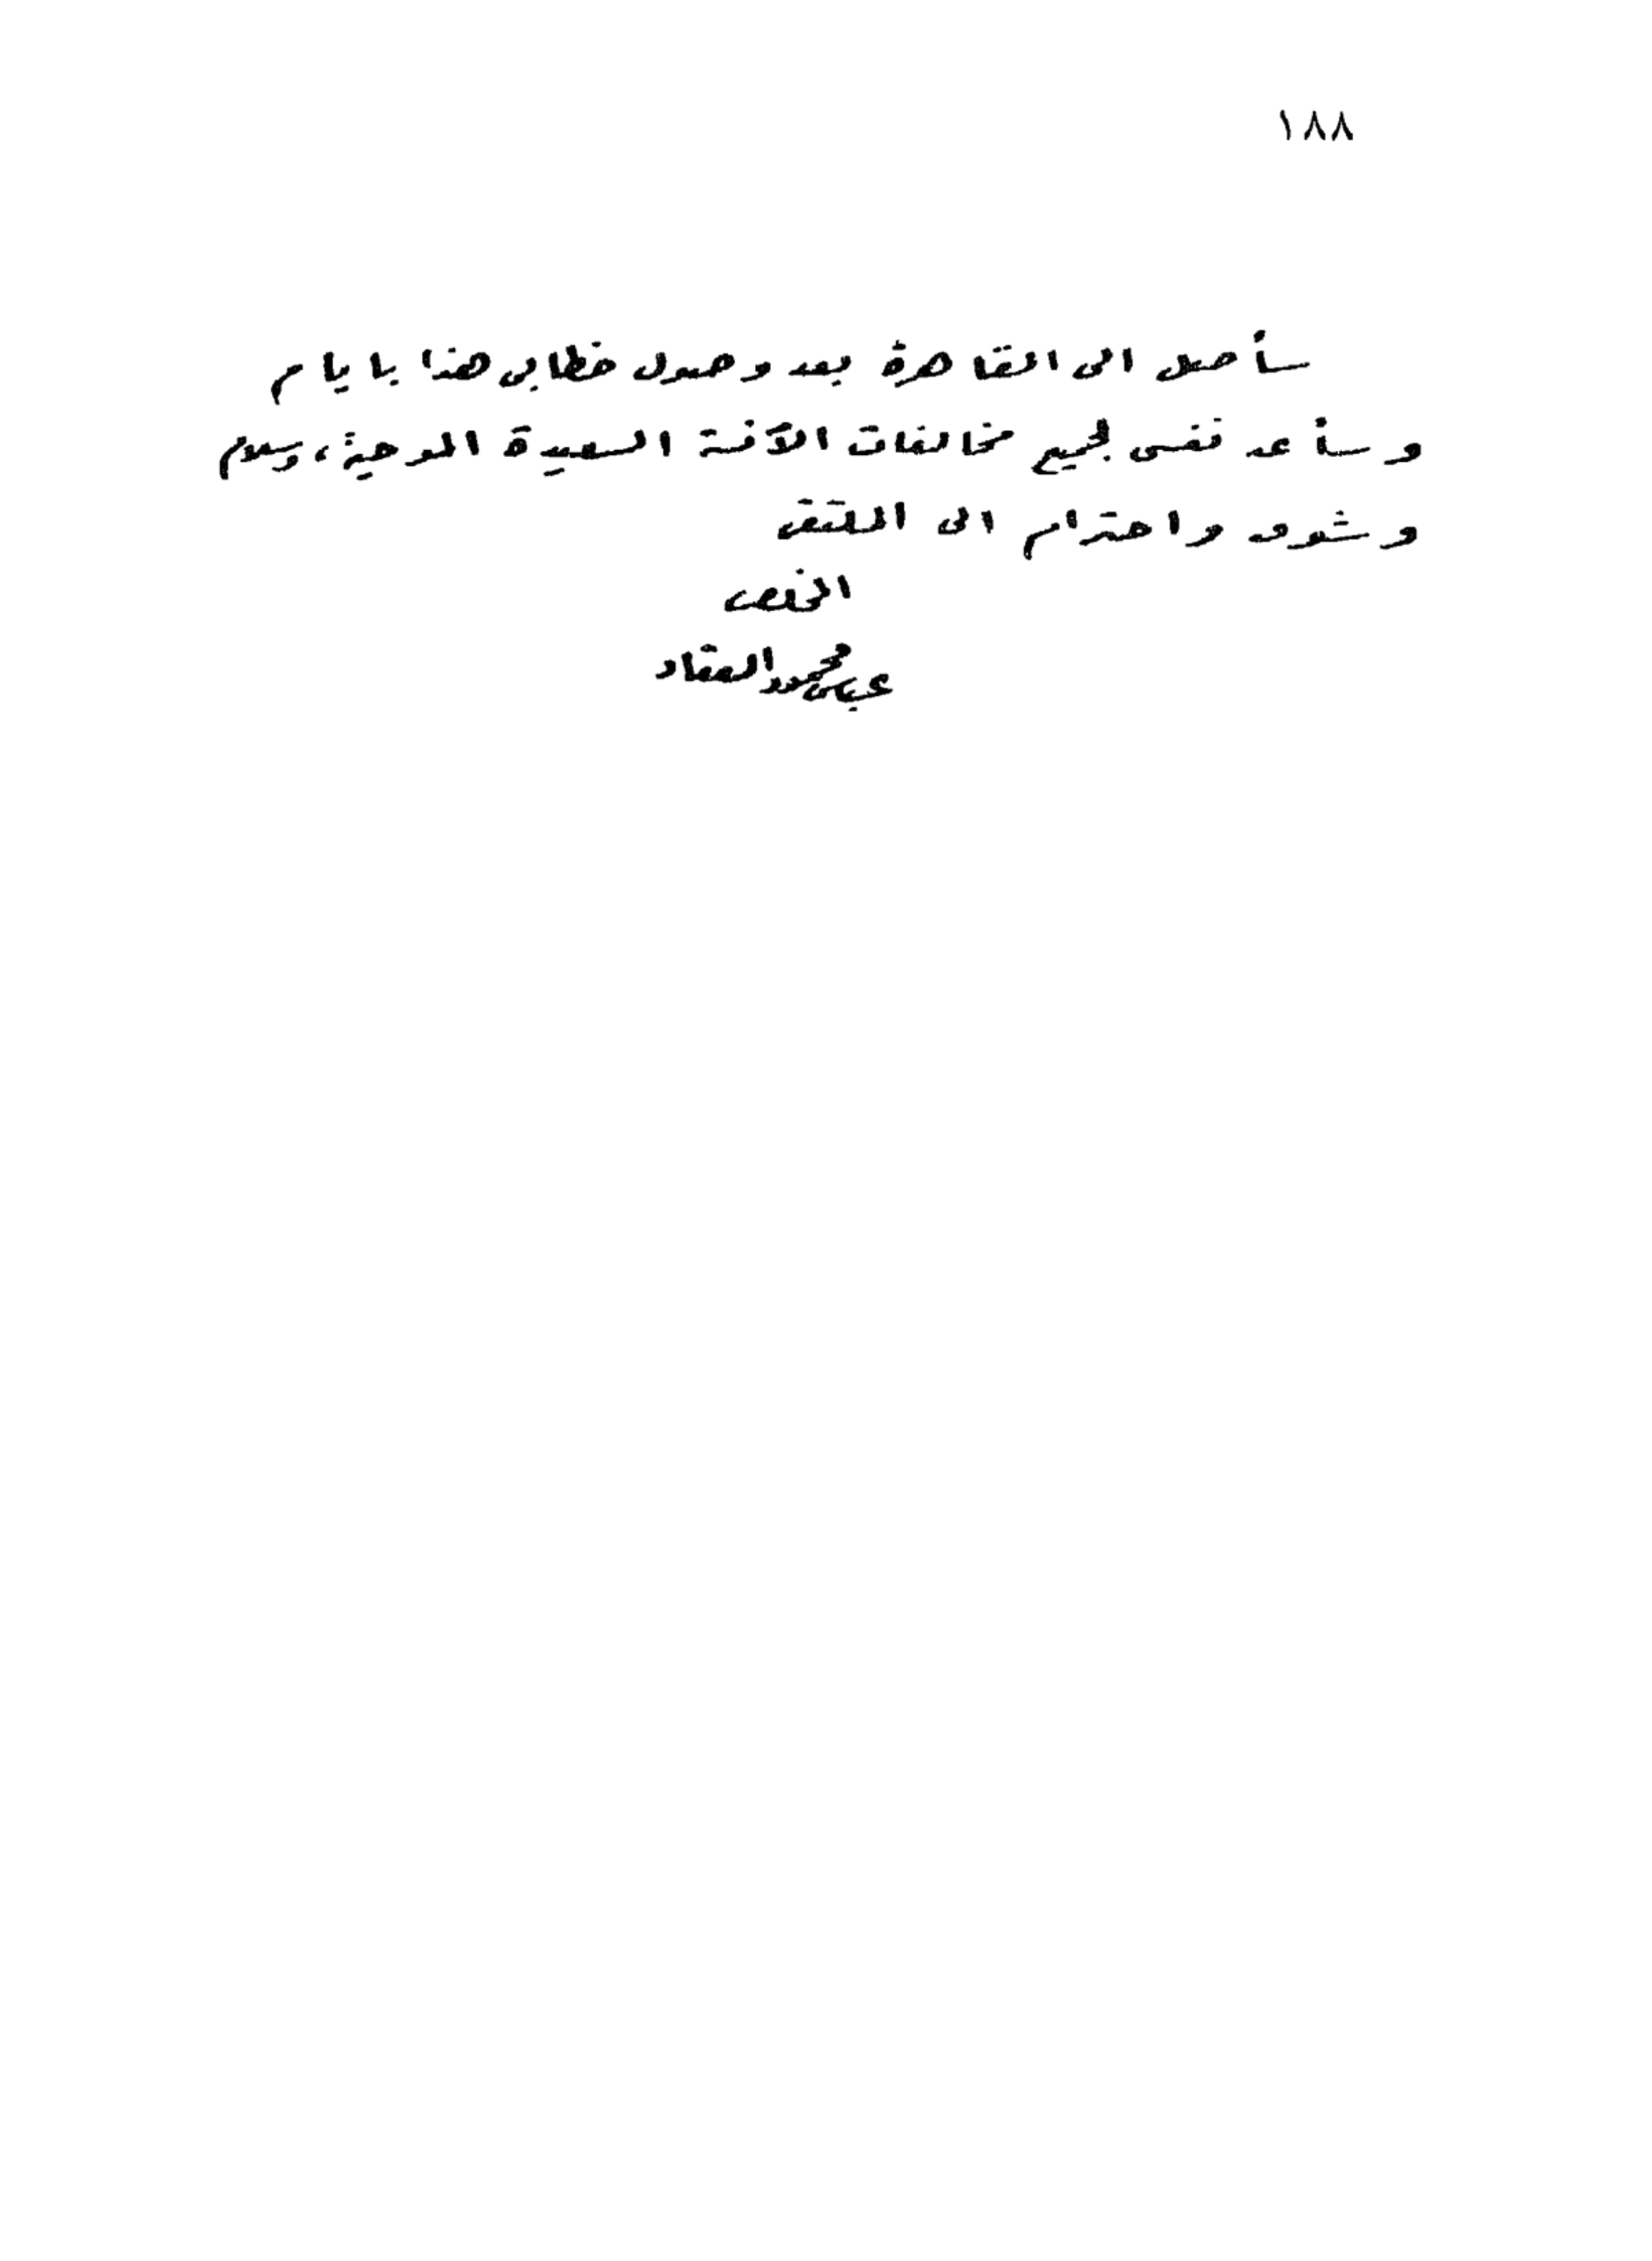 ١٨٨
سأصل الى القاهرة بعد وصول خطابى هذا بايام
و سأعد نفسى لجميع مخالفات الآنسة السعيدة الموحية، وسلام
و شوق واحترام الى الملتقى
المخلص
عباس محمود العقاد